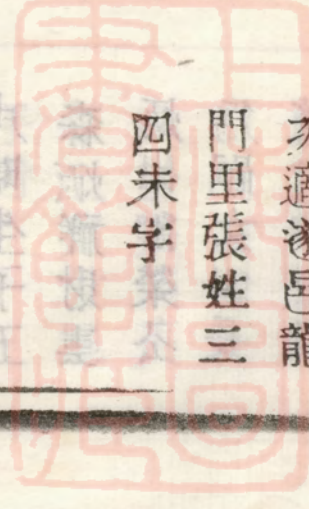 次適遂邑龍
門里張姓三
四未字